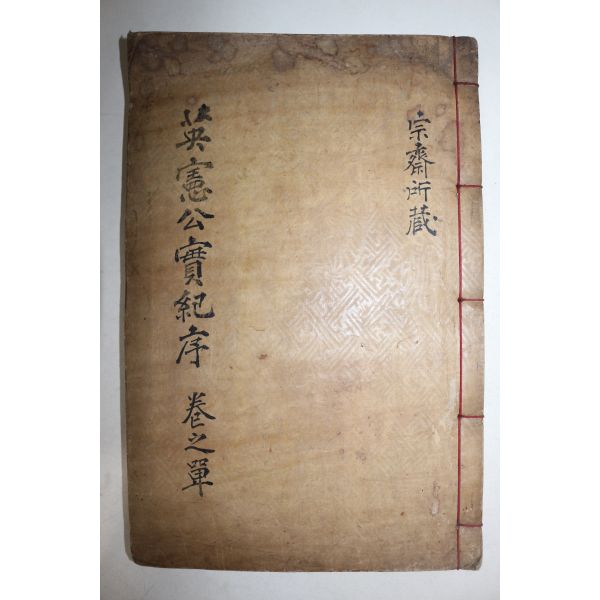 宗齋所蔵
英憲公實紀序 卷之單